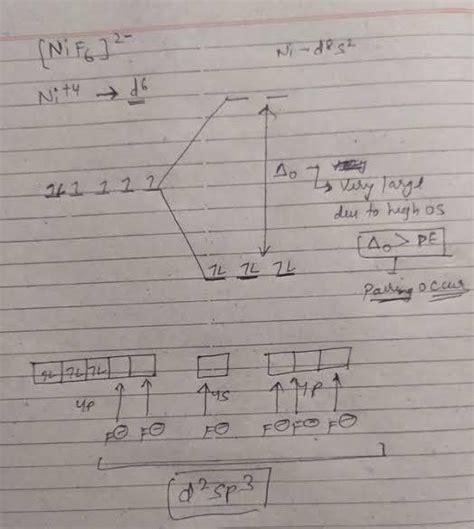 [NiF6]2-
Ni - d8s2
Ni+4 → d6
1L 1 1 1 1
Δo →
↳ Very large
due to high OS
Δo > PE
Pairing occur
1L 1L 1L
1L 1L 1L
4p 4s 4p
F⊖ F⊖ F⊖ F⊖ F⊖ F⊖
d2sp3